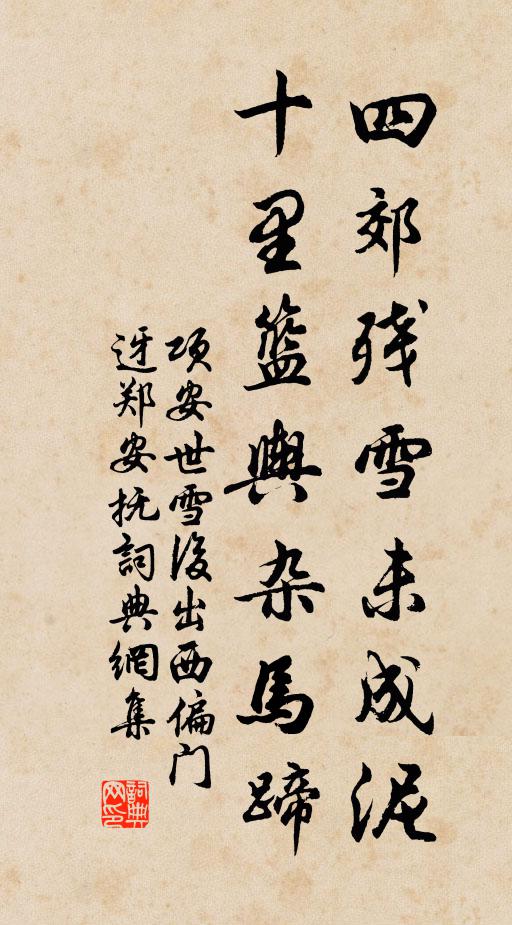 四郊残雪未成泥
十里籃輿杂馬蹄
项安世雪後出西偏门
迓郑安抚詞典網集
詞典
网印